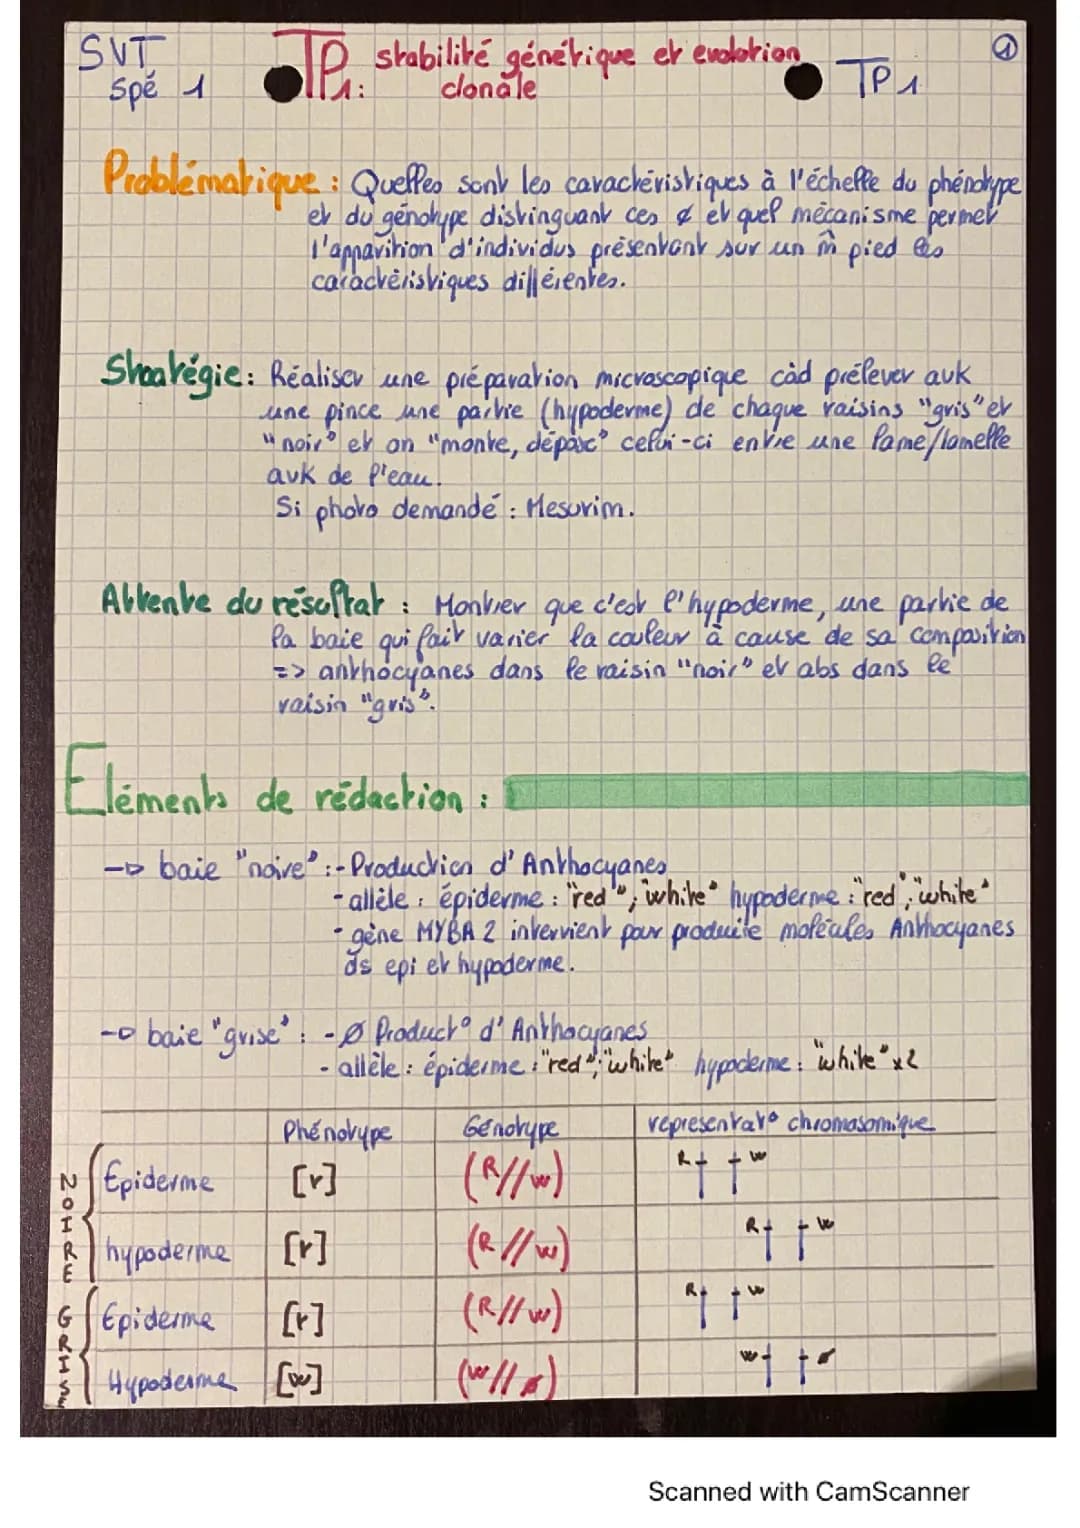 SVT
Spé 1
TP1: stabilité génétique et evolotion
clonale
TP1
1
Problématique : Quelles sont les caractéristiques à l'échelle du phénotype
et du génotype distinguant ces et quel mécanisme permet
l'apparition d'individus présentant sur un m̂ pied les
caractéristiques différentes.
Stratégie: Réaliser une préparation microscopique càd prélever avk
une pince une partie (hypoderme) de chaque raisins "gris" et
"noir" et on "monte, dépose" celui-ci entre une lame/lamelle
avk de l'eau.
Si photo demandé : Mesurim.
Attente du résultat : Montrer que c'est l'hypoderme, une partie de
la baie qui fait varier la couleur à cause de sa composition
=> anthocyanes dans le raisin "noir" et abs dans le
raisin "gris".
Eléments de rédaction :
→ baie "noire" :- Production d'Anthocyanes
- allèle : épiderme : "red" ; "white" hypoderme : "red" ; "white"
- gène MYBA 2 intervient pour produite molécules Anthocyanes
ds epi et hypoderme.
→ baie "grise" : - Ø Product° d'Anthocyanes
- allèle : épiderme : "red" ; "white" hypoderme : "white" x2
Phénotype Génotype representat° chromosomique
NOIRE
Epiderme [r] (R//w) R w
hypoderme [r] (R//w) R w
GRISE
Epiderme [r] (R//w) R w
Hypoderme [w] (w// ) w
Scanned with CamScanner